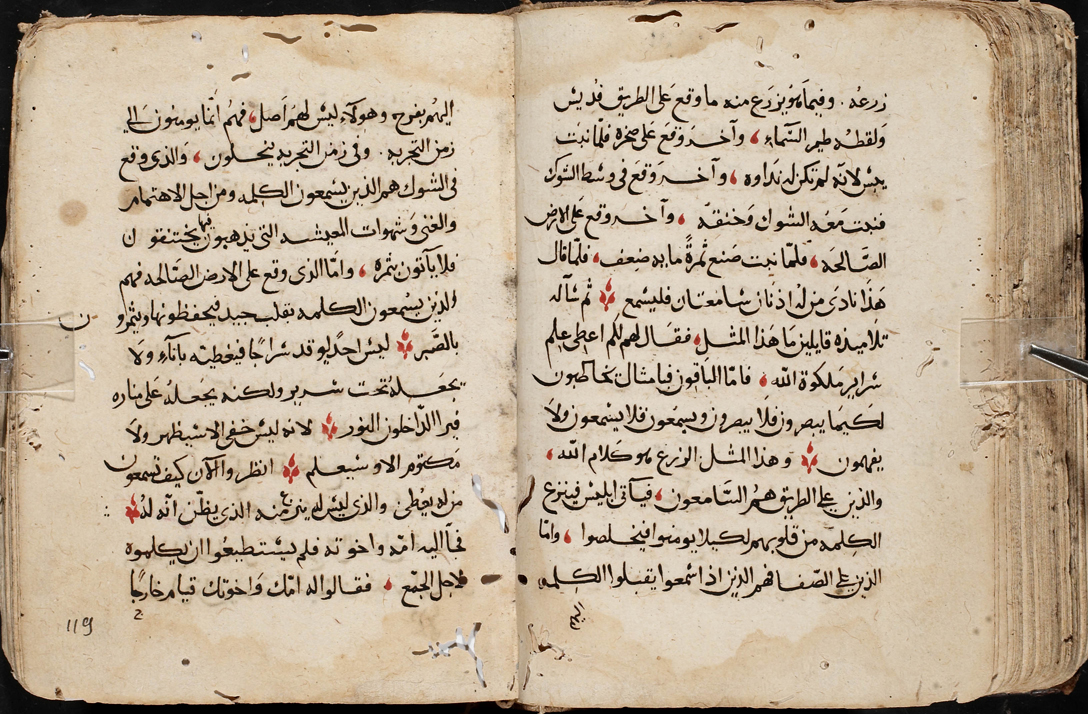 زرعه . وفيما هو يزرع منه ما وقع على الطريق فديس
ولقطه طير السماء ، وآخر وقع على صخرة فلما نبت
يبس لانه لم تكن له نداوه ، وآخر وقع في وسط الشوك
فنبت معه الشوك وخنقه ، وآخر وقع على الارض
الصالحه ، فلما نبت صنع ثمرة مايه ضعف ، فلما قال
هذا نادى من له اذنان سامعتان فليسمع ثم سآله
تلاميذه قايلين ما هذا المثل ، فقال لهم لكم اعطى علم
سراير ملكوة الله ، فاما الباقون فبامثال تخاطبون
لكيما يبصرون فلا يبصرون ويسمعون فلا يسمعون ولا
يفهمون وهذا المثل الزرع هو كلام الله ،
والذين على الطريق هم السامعون ، فيآتى ابليس فينزع
الكلمه من قلوبهم لكيلا يومنوا فيخلصوا ، واما
الذين على الصفا فهم الذين اذا سمعوا يقبلوا الكلمه
اليهم بفرح وهولآء ليس لهم اصل ، فهم انما يومنون الى
زمن التجربه . وفى زمن التجربه ينحلون ، والذى وقع
فى الشوك هم الذين يسمعون الكلمه ومن اجل الاهتمام
والغنى وشهوات المعيشه التى يذهبون فيها يختنقون
فلا يآتون ثمره ، واما الذى وقع على الارض الصالحه فهم
الذين يسمعون الكلمه بقلب جيد فيحفظونها ويثمرون
بالصبر ليس احد يوقد سراجا فيغطيه بانآء ولا
يجعله تحت سرير ولكنه يجعله على مناره
فيرا الداخلون النور لانه ليس خفى الا سيظهر ولا
مكتوم الا وسيعلم انظروا الآن كيف تسمعون
من له يعطى والذى ليس له ينزع منه الذى يظن انه له
فجآ اليه امه واخوته فلم يستطيعوا ان يكلموه
لاجل الجمع ، فقالوا له امك واخوتك قيام خارجا
119